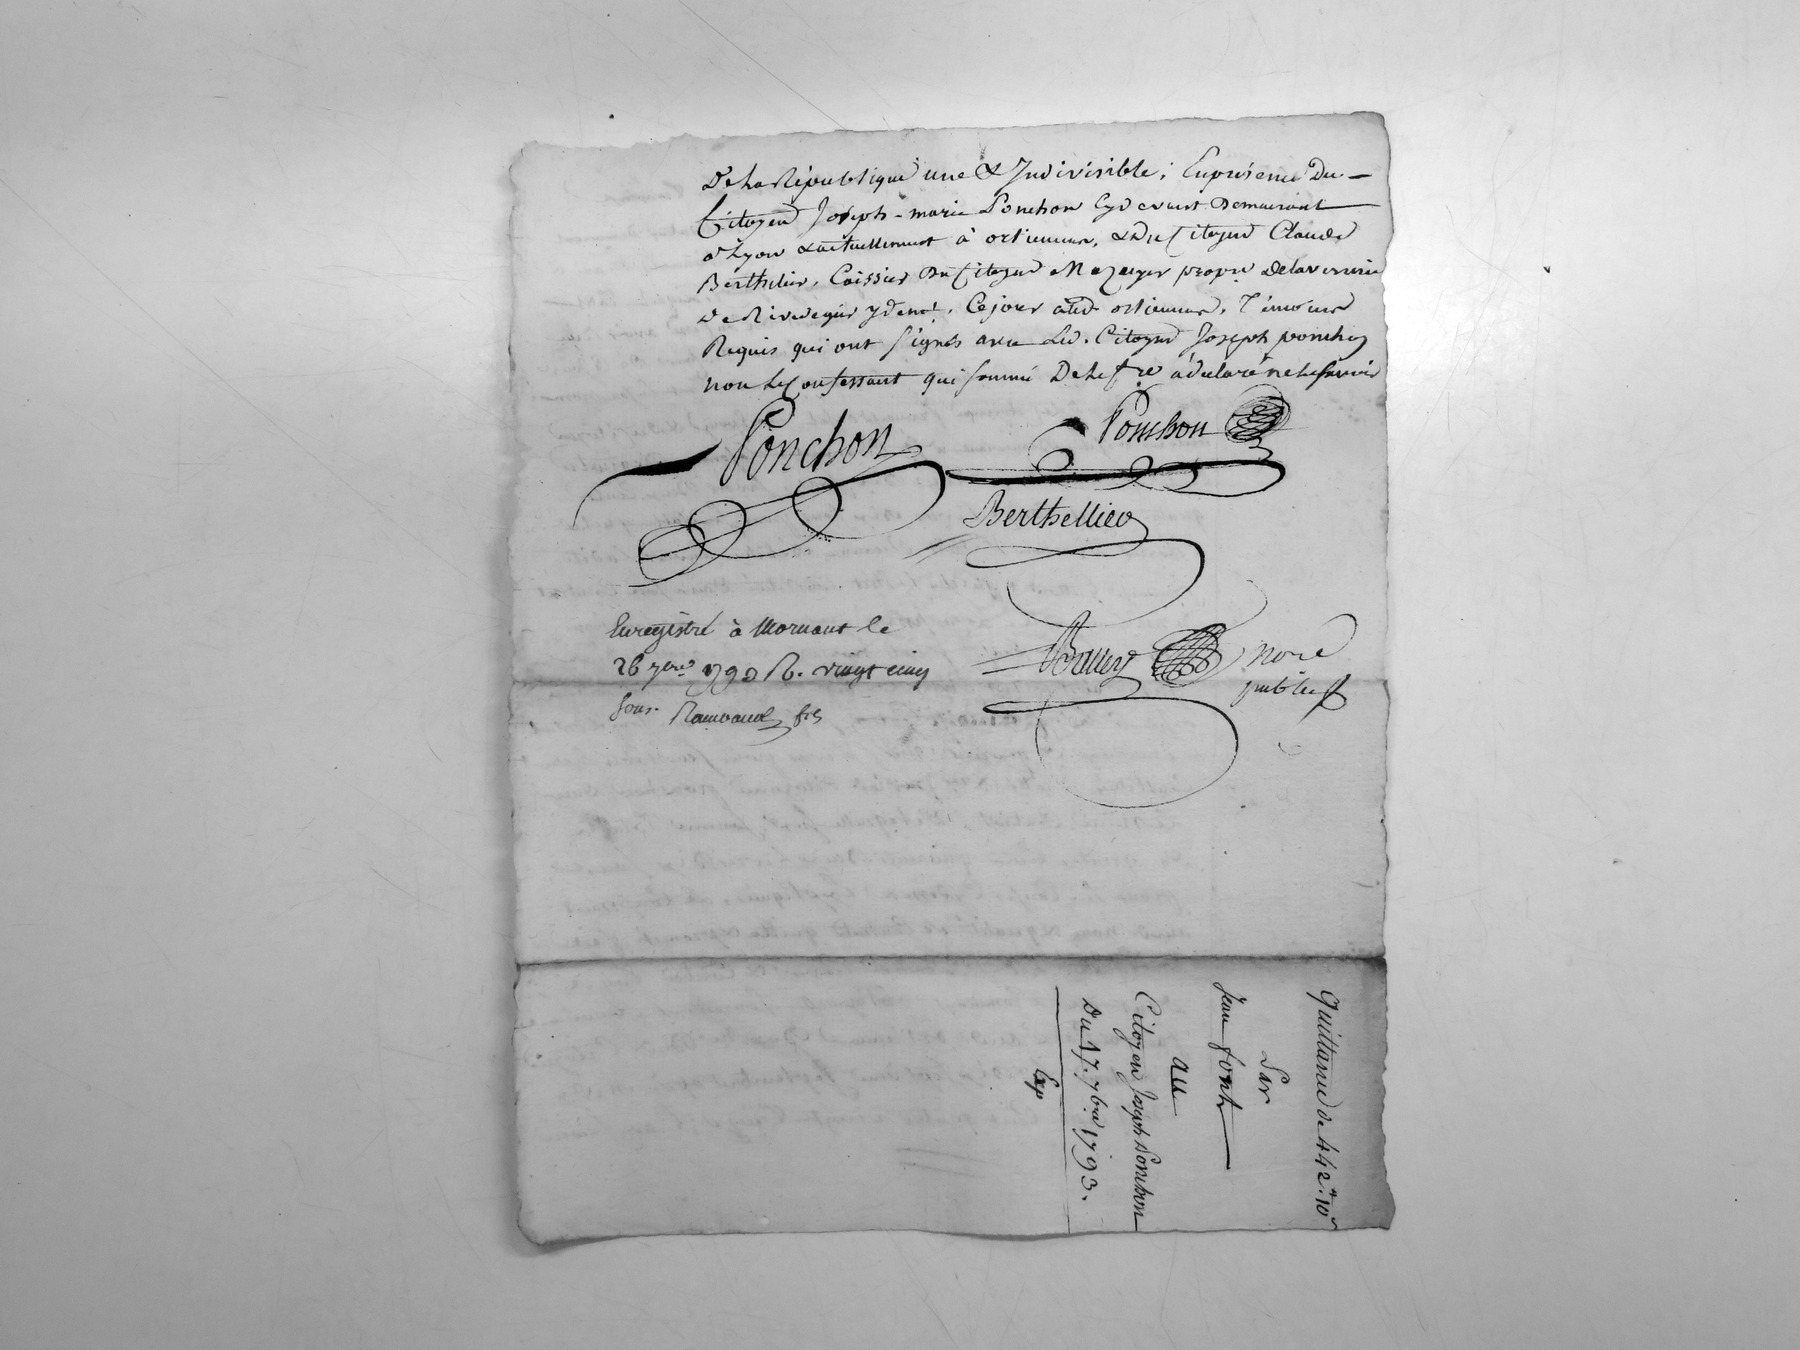 De la République une & Indivisible, En présence Du
Citoyen Joseph-marie Ponchon Cydevant Demeurant
à Lyon & actuellement à orlienas, & Du Citoyen Claude
Berthelier, Caissier Du Citoyen propre De la verrerie
De Rivedegier y demt. Ce jour aud orlienas, Témoins
Requis qui ont signés avec Led. Citoyen Joseph ponchon
non Le Confessant qui sommé De le fre a déclaré ne le savoir
Ponchon
Ponchon
Berthellier
Enregistré à Mornant le
26 7bre 1793 R. vingt cinq
sous. fils
nore
public
Quittance de 442# 10s
Par
Jean font
au
Citoyen Joseph Ponchon
Du 17. 7bre 1793.
Exp